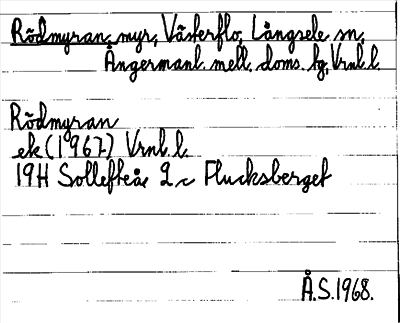 Rödmyran, myr, Västerflo, Långsele sn,
Ångermanl. mell. doms. bg, Vrnl. l.
Rödmyran
ek (1967) Vrnl. l.
19H Sollefteå 2 c Flucksberget
Å.S. 1968.